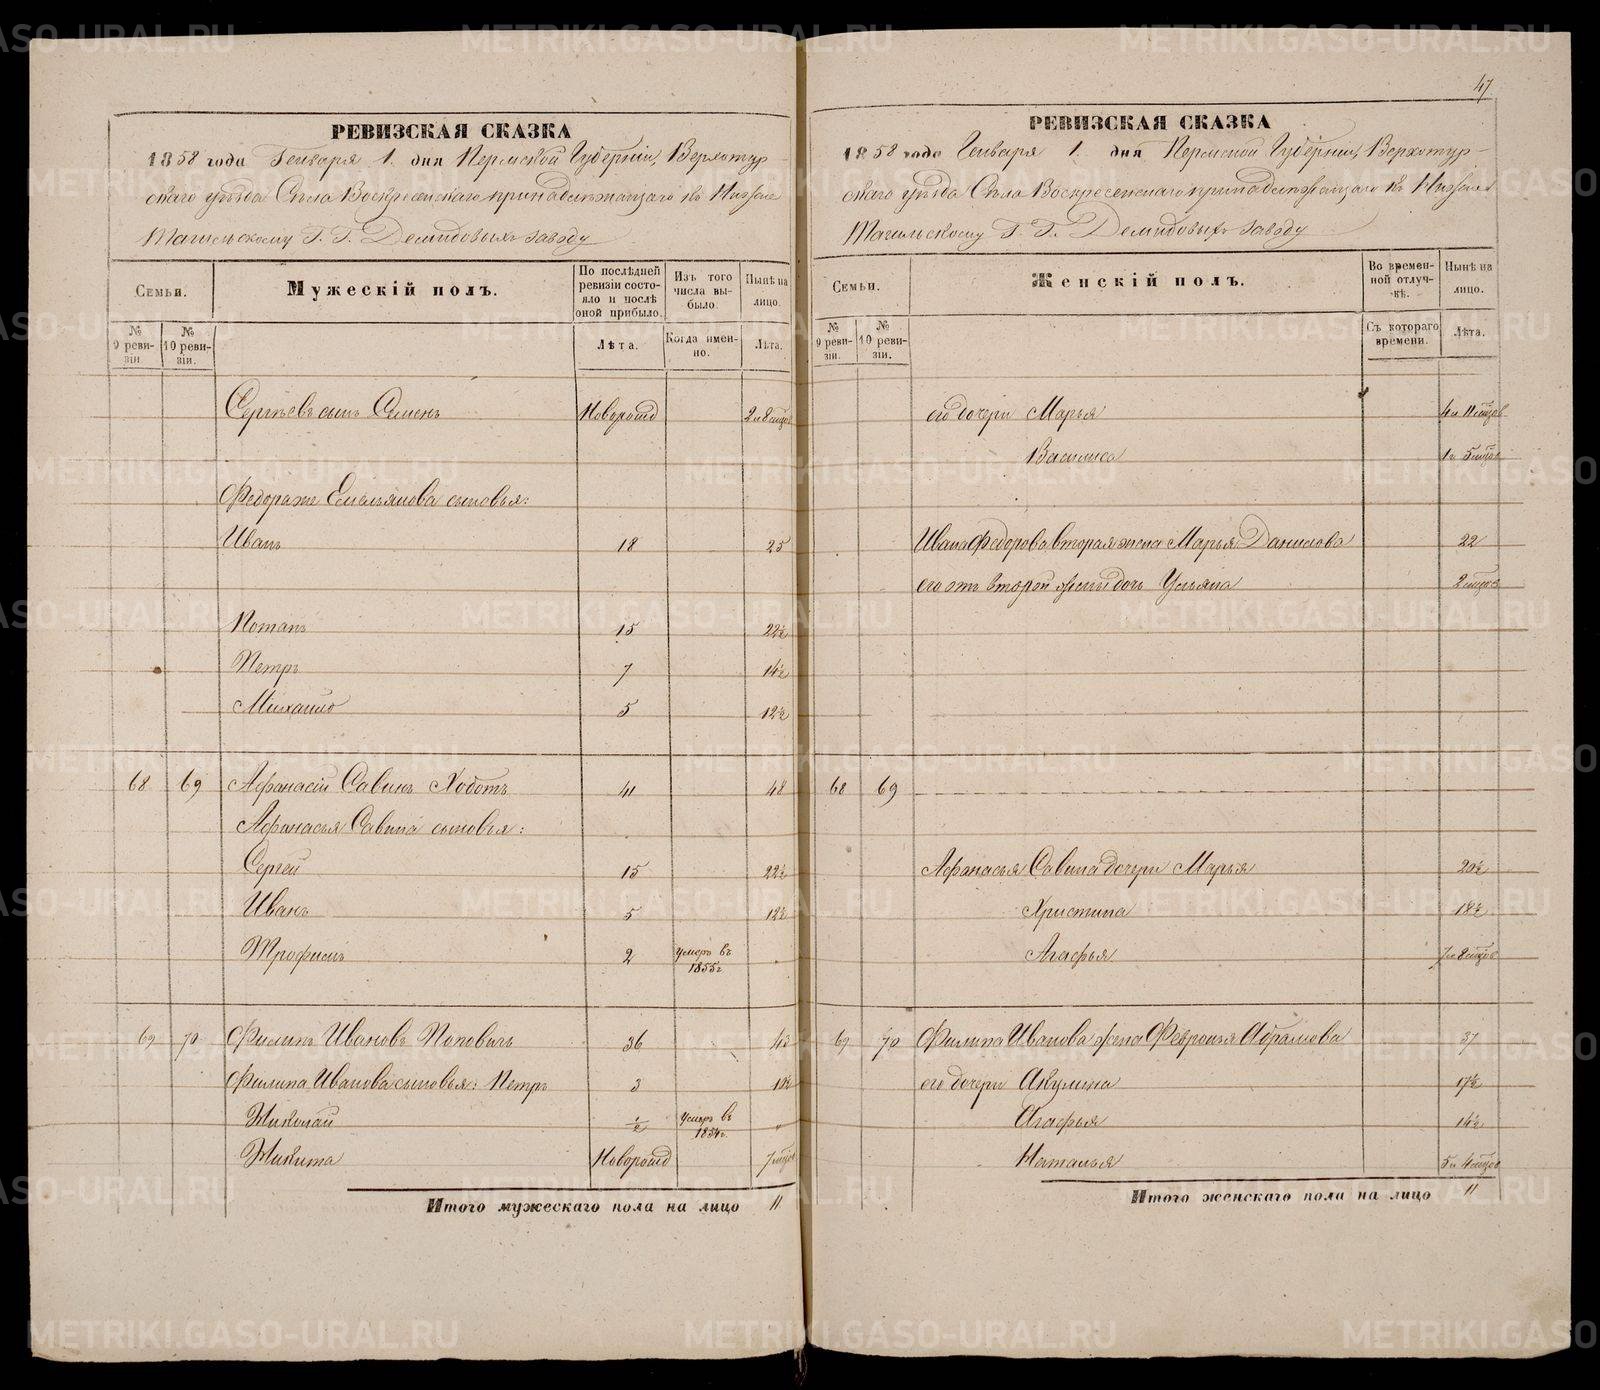 47
РЕВИЗСКАЯ СКАЗКА
1858 года Генваря 1. дня Пермской Губерніи, Верхотур-
скаго уѣзда Села Воскресенскаго принадлежащаго къ Нижне
Тагильскому Г. Г. Демидовыхъ заводу
Семьи.
Мужескій полъ.
По послѣдней ревизіи состояло и послѣ оной прибыло.
Изъ того числа выбыло.
Нынѣ на лицо.
№ 9 ревизіи.
№ 10 ревизіи.
Лѣта.
Когда именно.
Лѣта.
Сергѣевъ сынъ Семенъ Новорожд 2 и 8 мцов
Федора же Емельянова сыновья:
Иванъ 18 25
Потапъ 15 22½
Петръ 7 14½
Михайло 5 12½
68 69 Афанасій Савинъ Хоботъ 41 48
Афанасья Савина сыновья:
Сергей 15 22½
Иванъ 5 12½
Трофимъ 2 умеръ въ 1855 г
69 70 Филипъ Ивановъ Поповичъ 36 43
Филипа Иванова сыновья: Петръ 3 10½
Николай ½ Умеръ въ 1854 г. "
Никита Новорожд 7 мцов
Итого мужескаго пола на лицо 11
РЕВИЗСКАЯ СКАЗКА
1858 года Генваря 1. дня Пермской Губерніи, Верхотур-
скаго уѣзда Села Воскресенскаго принадлежащаго къ Нижне
Тагильскому Г. Г. Демидовыхъ заводу
Семьи.
Женскій полъ.
Во временной отлучкѣ.
Нынѣ на лицо.
№ 9 ревизіи.
№ 10 ревизіи.
Съ котораго времени.
Лѣта.
его дочери Марья 4 и 11 мцов
Василиса 1 и 5 мцов
Ивана Федорова вторая жена Марья Данилова 22
его отъ второй жены дочь Ульяна 8 мцов
68 69
Афанасья Савина дочери Марья 20½
Христина 18½
Агафья 7 и 8 мцов
69 70 Филипа Иванова жена Февронья Абрамова 37
его дочери Акулина 17½
Агафья 14½
Наталья 5 и 4 мцов
Итого женскаго пола на лицо 11
METRIKI.GASO-URAL.RU